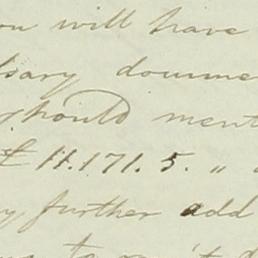 you will have
ssary docume
should ment
£ 11.171. 5. „
y further add